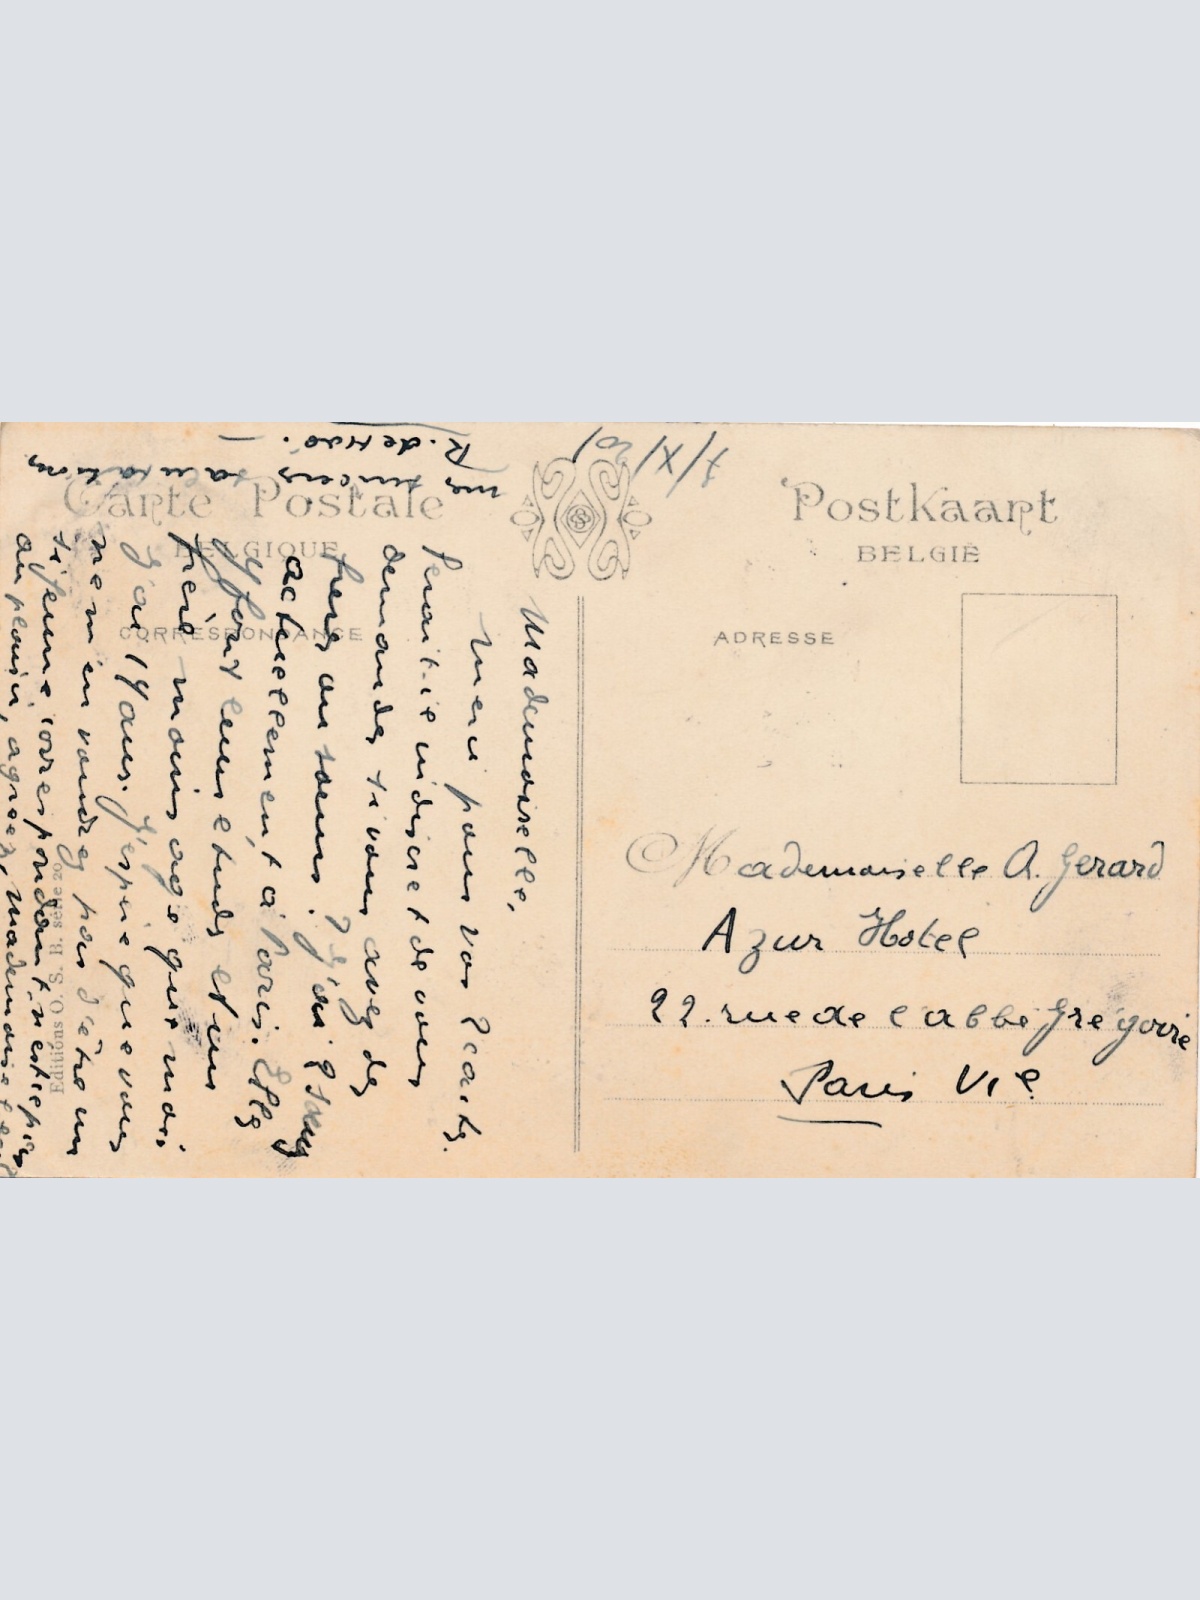 Carte Postale
BELGIQUE
CORRESPONDANCE
Postkaart
BELGIË
ADRESSE
7/X/20
Mademoiselle,
Merci pour vos 2 cartes.
Serait-il indiscret de vous
demander si vous avez des
freres ou soeurs? J'ai 2 soeurs
actuellement à Paris. Elles
y font leurs etudes et un
frère moins age que moi.
J'ai 19 ans. J'espère que vous
ne m'en voudrez pas d'être un
si jeune correspondant, n'est ce pas
au plaisir, agreez, Mademoiselle
mes sinceres salutations
R. de
Editions O. S. B. série 20
Mademoiselle A. Gerard
Azur Hotel
22. rue de l'abbé Grégoire
Paris VIe